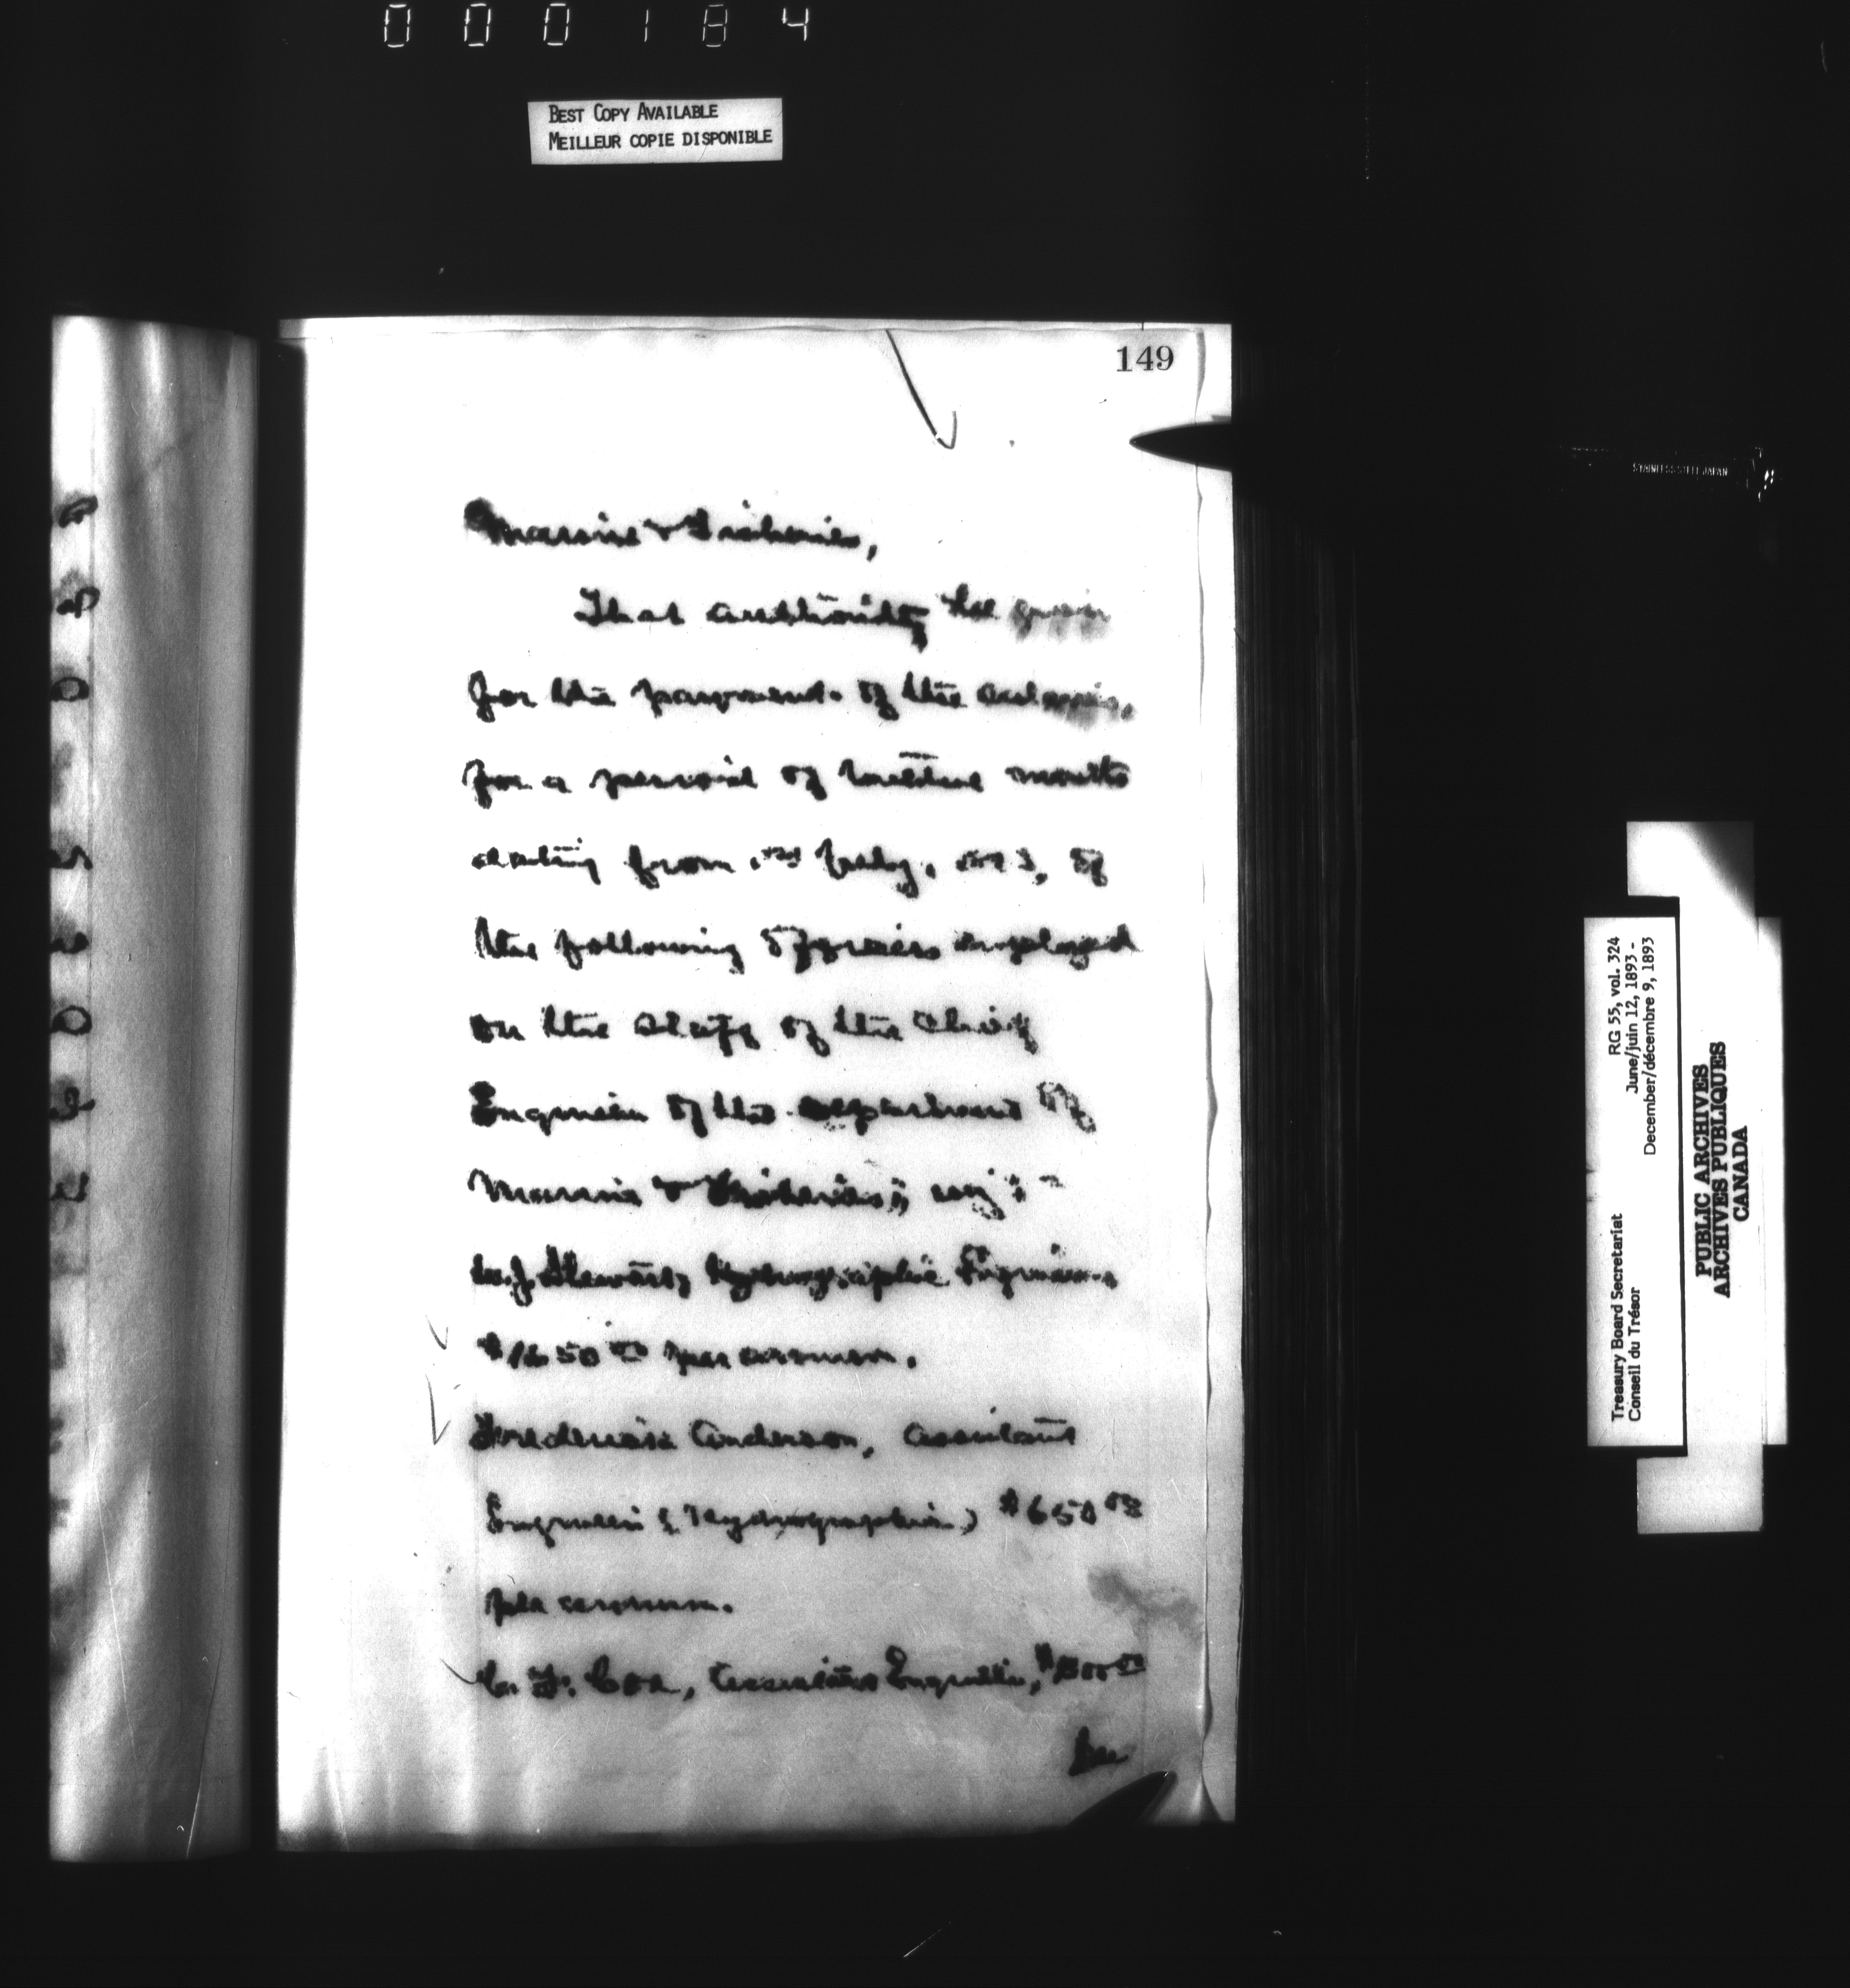 000184
BEST COPY AVAILABLE
MEILLEUR COPIE DISPONIBLE
149
Marine & Fisheries,
That authority be given
for the payment of the salaries,
for a period of twelve months
dating from 1st July, 1893, of
the following officers employed
on the staff of the Chief
Engineer of the Department of
Marine & Fisheries; viz:-
W.J. Stewart, Hydrographic Engineer
$1650 00 per annum.
Frederick Anderson, Assistant
Engineer (Hydrographic) $650 00
per annum.
Assistant Engineer,
per
STAINLESS STEEL JAPAN
Treasury Board Secretariat RG 55, vol. 324
Conseil du Trésor June/juin 12, 1893 -
December/décembre 9, 1893
PUBLIC ARCHIVES
ARCHIVES PUBLIQUES
CANADA